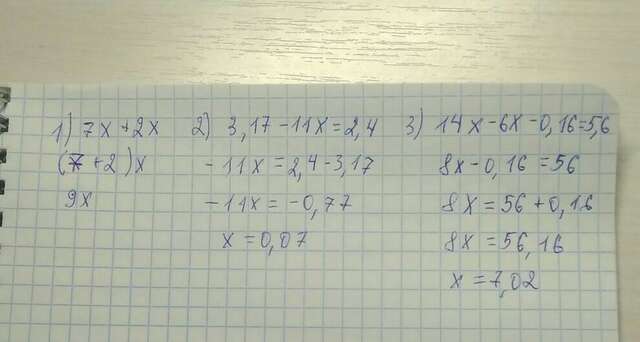 1) 7x+2x
(7+2)x
9x
2) 3,17-11x=2,4
-11x=2,4-3,17
-11x=-0,77
x=0,07
3) 14x-6x-0,16=5,6
8x-0,16=56
8x=56+0,16
8x=56,16
x=7,02